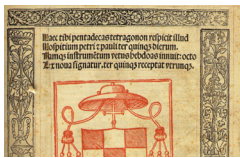 Haec tibi pentadecas tetragonon respicit illud
Hospitium petri ⁊ pauli ter quinq; dierum.
Namq; instrumētum vetus hebdoas innuit: octo
Lex noua signatur. ter quinq; receptat vtrunq;.